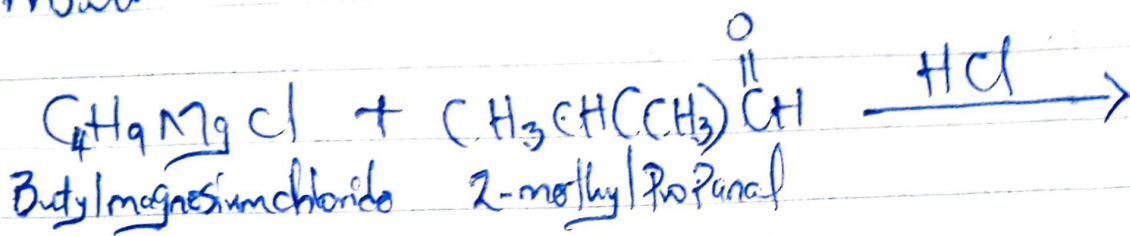 O
||
C4H9MgCl + CH3CH(CH3)CH HCl →
Butylmagnesiumchloride 2-methylPropanal